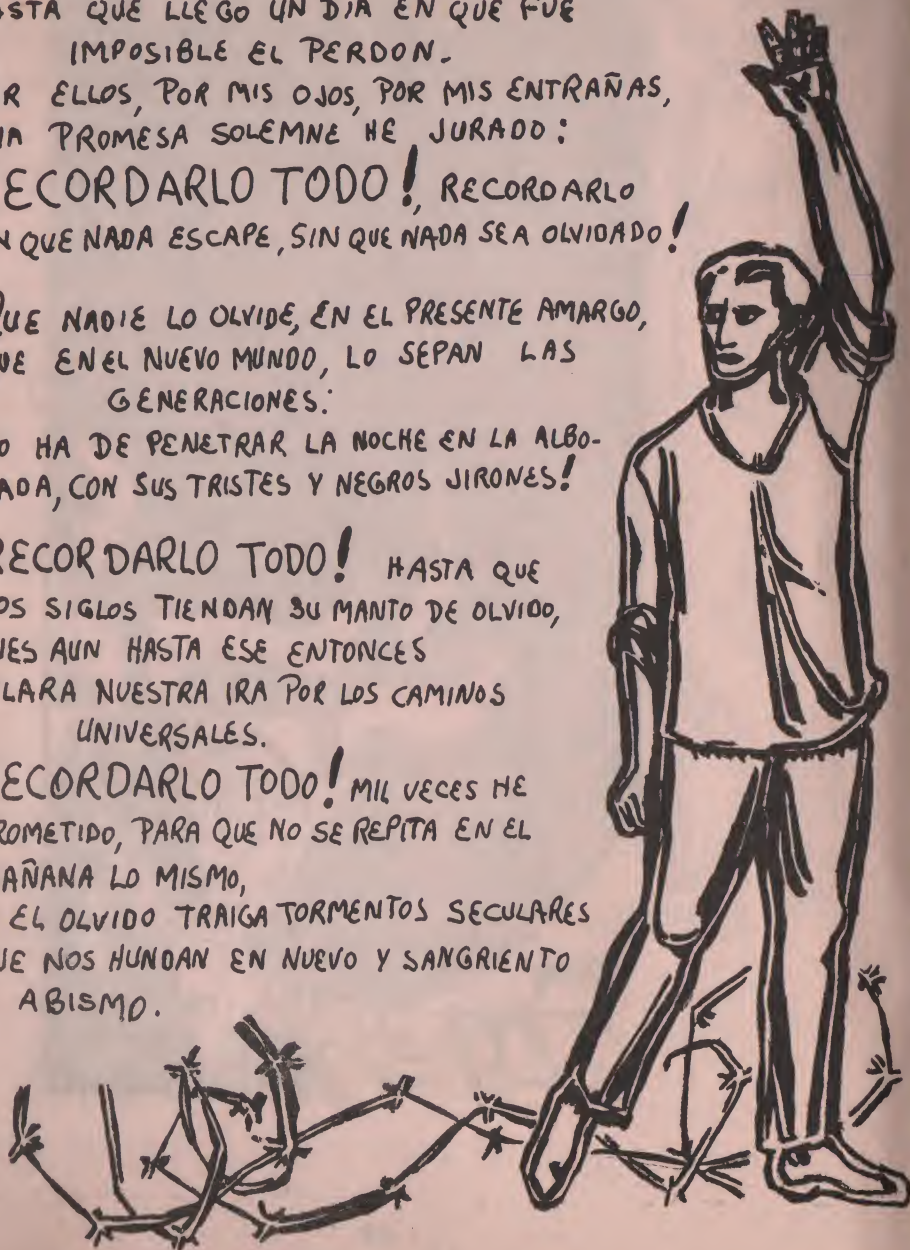 ASTA QUE LLEGO UN DIA EN QUE FUE
IMPOSIBLE EL PERDON.
R ELLOS, POR MIS OJOS, POR MIS ENTRAÑAS,
NA PROMESA SOLEMNE HE JURADO:
ECORDARLO TODO!, RECORDARLO
N QUE NADA ESCAPE, SIN QUE NADA SEA OLVIDADO!
QUE NADIE LO OLVIDE, EN EL PRESENTE AMARGO,
UE EN EL NUEVO MUNDO, LO SEPAN LAS
GENERACIONES:
O HA DE PENETRAR LA NOCHE EN LA ALBO-
ADA, CON SUS TRISTES Y NEGROS JIRONES!
RECORDARLO TODO! HASTA QUE
OS SIGLOS TIENDAN SU MANTO DE OLVIDO,
UES AUN HASTA ESE ENTONCES
LARA NUESTRA IRA POR LOS CAMINOS
UNIVERSALES.
ECORDARLO TODO! MIL VECES HE
ROMETIDO, PARA QUE NO SE REPITA EN EL
AÑANA LO MISMO,
EL OLVIDO TRAIGA TORMENTOS SECULARES
UE NOS HUNDAN EN NUEVO Y SANGRIENTO
ABISMO.